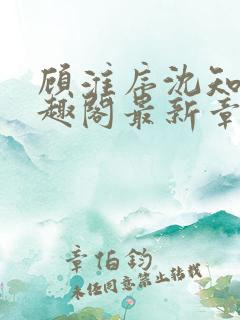 顾淮辰沈知
趣阁最新章
章伯钧
未经同意禁止转载